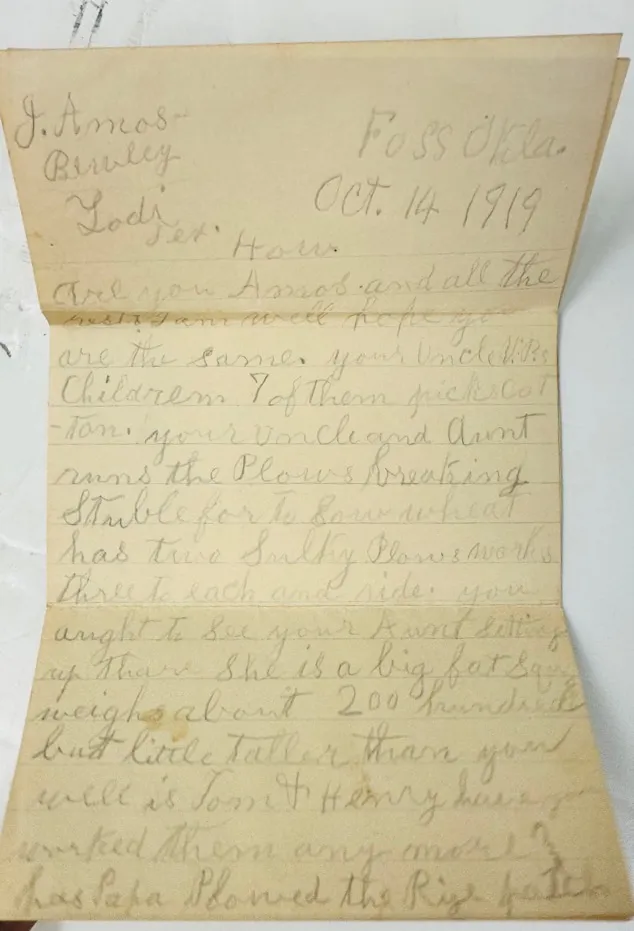 J. Amos
Foss Okla.
Oct. 14 1919
Lodi
Tex.
How
are you Amos. and all the
rest I am well hope
are the same. your Uncle
Childrem 7 of them picks Cot
-ton. your Uncle and Aunt
runs the Plows breaking
Stuble for to Sow wheat
has two Sulky Plows works
three to each and ride. you
aught to see your Aunt Setting
up thare She is a big fat
weighs about 200 hundred
but little taller than you
well is Tom & Henry have
worked them any more?
has Papa Plowed the patch